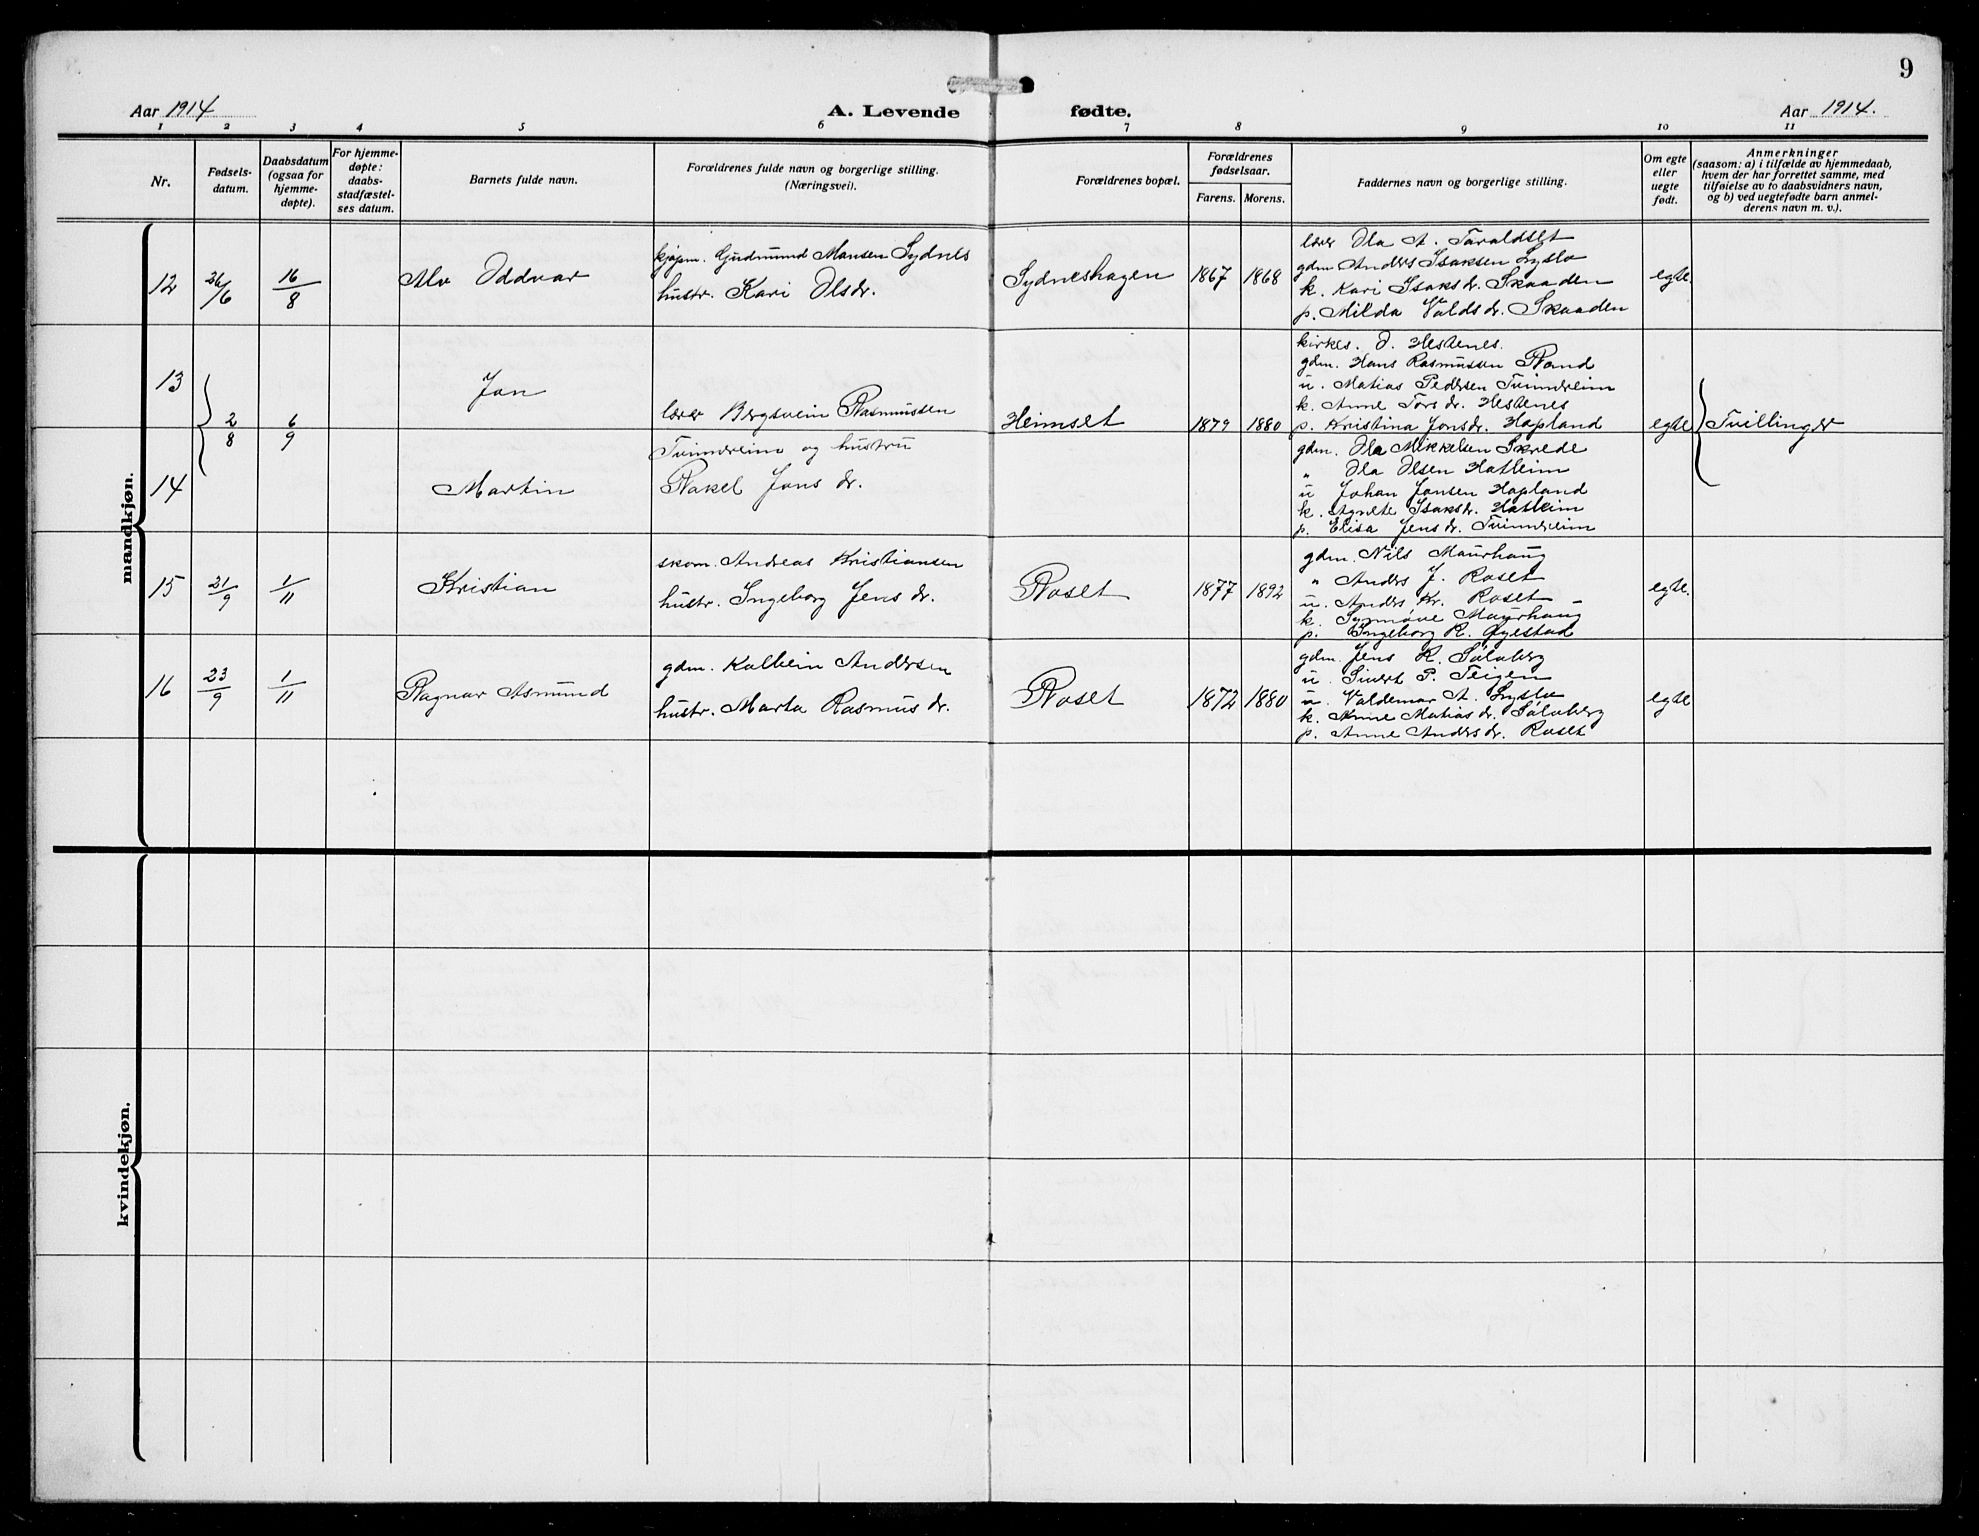 9
Aar 1914
A. Levende fødte.
Aar 1914.
1 2 3 4 5 6 7 8 9 10 11
Nr.
Fødsels-
datum.
Daabsdatum
(ogsaa for
hjemme-
døpte).
For hjemme-
døpte:
daabs-
stadfæstel-
ses datum.
Barnets fulde navn.
Forældrenes fulde navn og borgerlige stilling.
(Næringsvei).
Forældrenes bopæl.
Forældrenes
fødselsaar.
Farens. Morens.
Faddernes navn og borgerlige stilling.
Om egte
eller
uegte
født.
Anmerkninger
(saasom: a) i tilfælde av hjemmedaab,
hvem der har forrettet samme, med
tilføielse av to daabsvidners navn,
og b) ved uegtefødte barn anmel-
derens navn m. v.).
mandkjøn.
12
26/6
16/8
Alv Oddvar
kjøpm. Gudmund Mansen Sydnes
hustr. Kari Olsdr.
Sydneshagen
1867 1868
lærer Ola A. Taraldset
gdm Anders Isaksen Lyslo
k. Kari Isaksdr. Skaaden
p. Milda Valdsdr. Skaaden
egte.
13
2/8
6/9
Jon
lærer Bergsvein Rasmussen
Tvinnereim og hustru
Rakel Jons dr.
Heimset
1879 1880
kirkes. O. Hestenes.
gdm. Hans Rasmussen Rand
u. Matias Pedersen Tvinnereim
k. Anne Torsdr. Hestenes
p. Kristina Jonsdr. Hopland
egte
Tvillinger
14
Martin
gdm. Ola Mikkelsen Skrede
" Ola Olsen Hatleim
u Johan Jonsen Hopland
k. Agnete Isaksdr. Hatleim
p. Elisa Jensdr. Tvinnereim
15
21/9
1/11
Kristian
skom. Andreas Kristiansen
hustr. Ingeborg Jens dr.
Roset
1877 1892
gdm. Nils Maurhaug
" Anders J. Roset
u. Anders Kr. Roset
k. Synnøve Maurhaug
p. Ingeborg R. Øyestad
egte.
16
23/9
1/11
Ragnar Asmund
gdm. Kolbein Andersen
hustr. Marta Rasmus dr.
Roset
1872 1880
gdm. Jens R. Sølvberg
u. Sivert P. Teigen
u. Valdemar A. Lyslo
k. Anne Matias dr. Sølvberg
p. Anne Anders dr. Roset
egte
kvindekjøn.